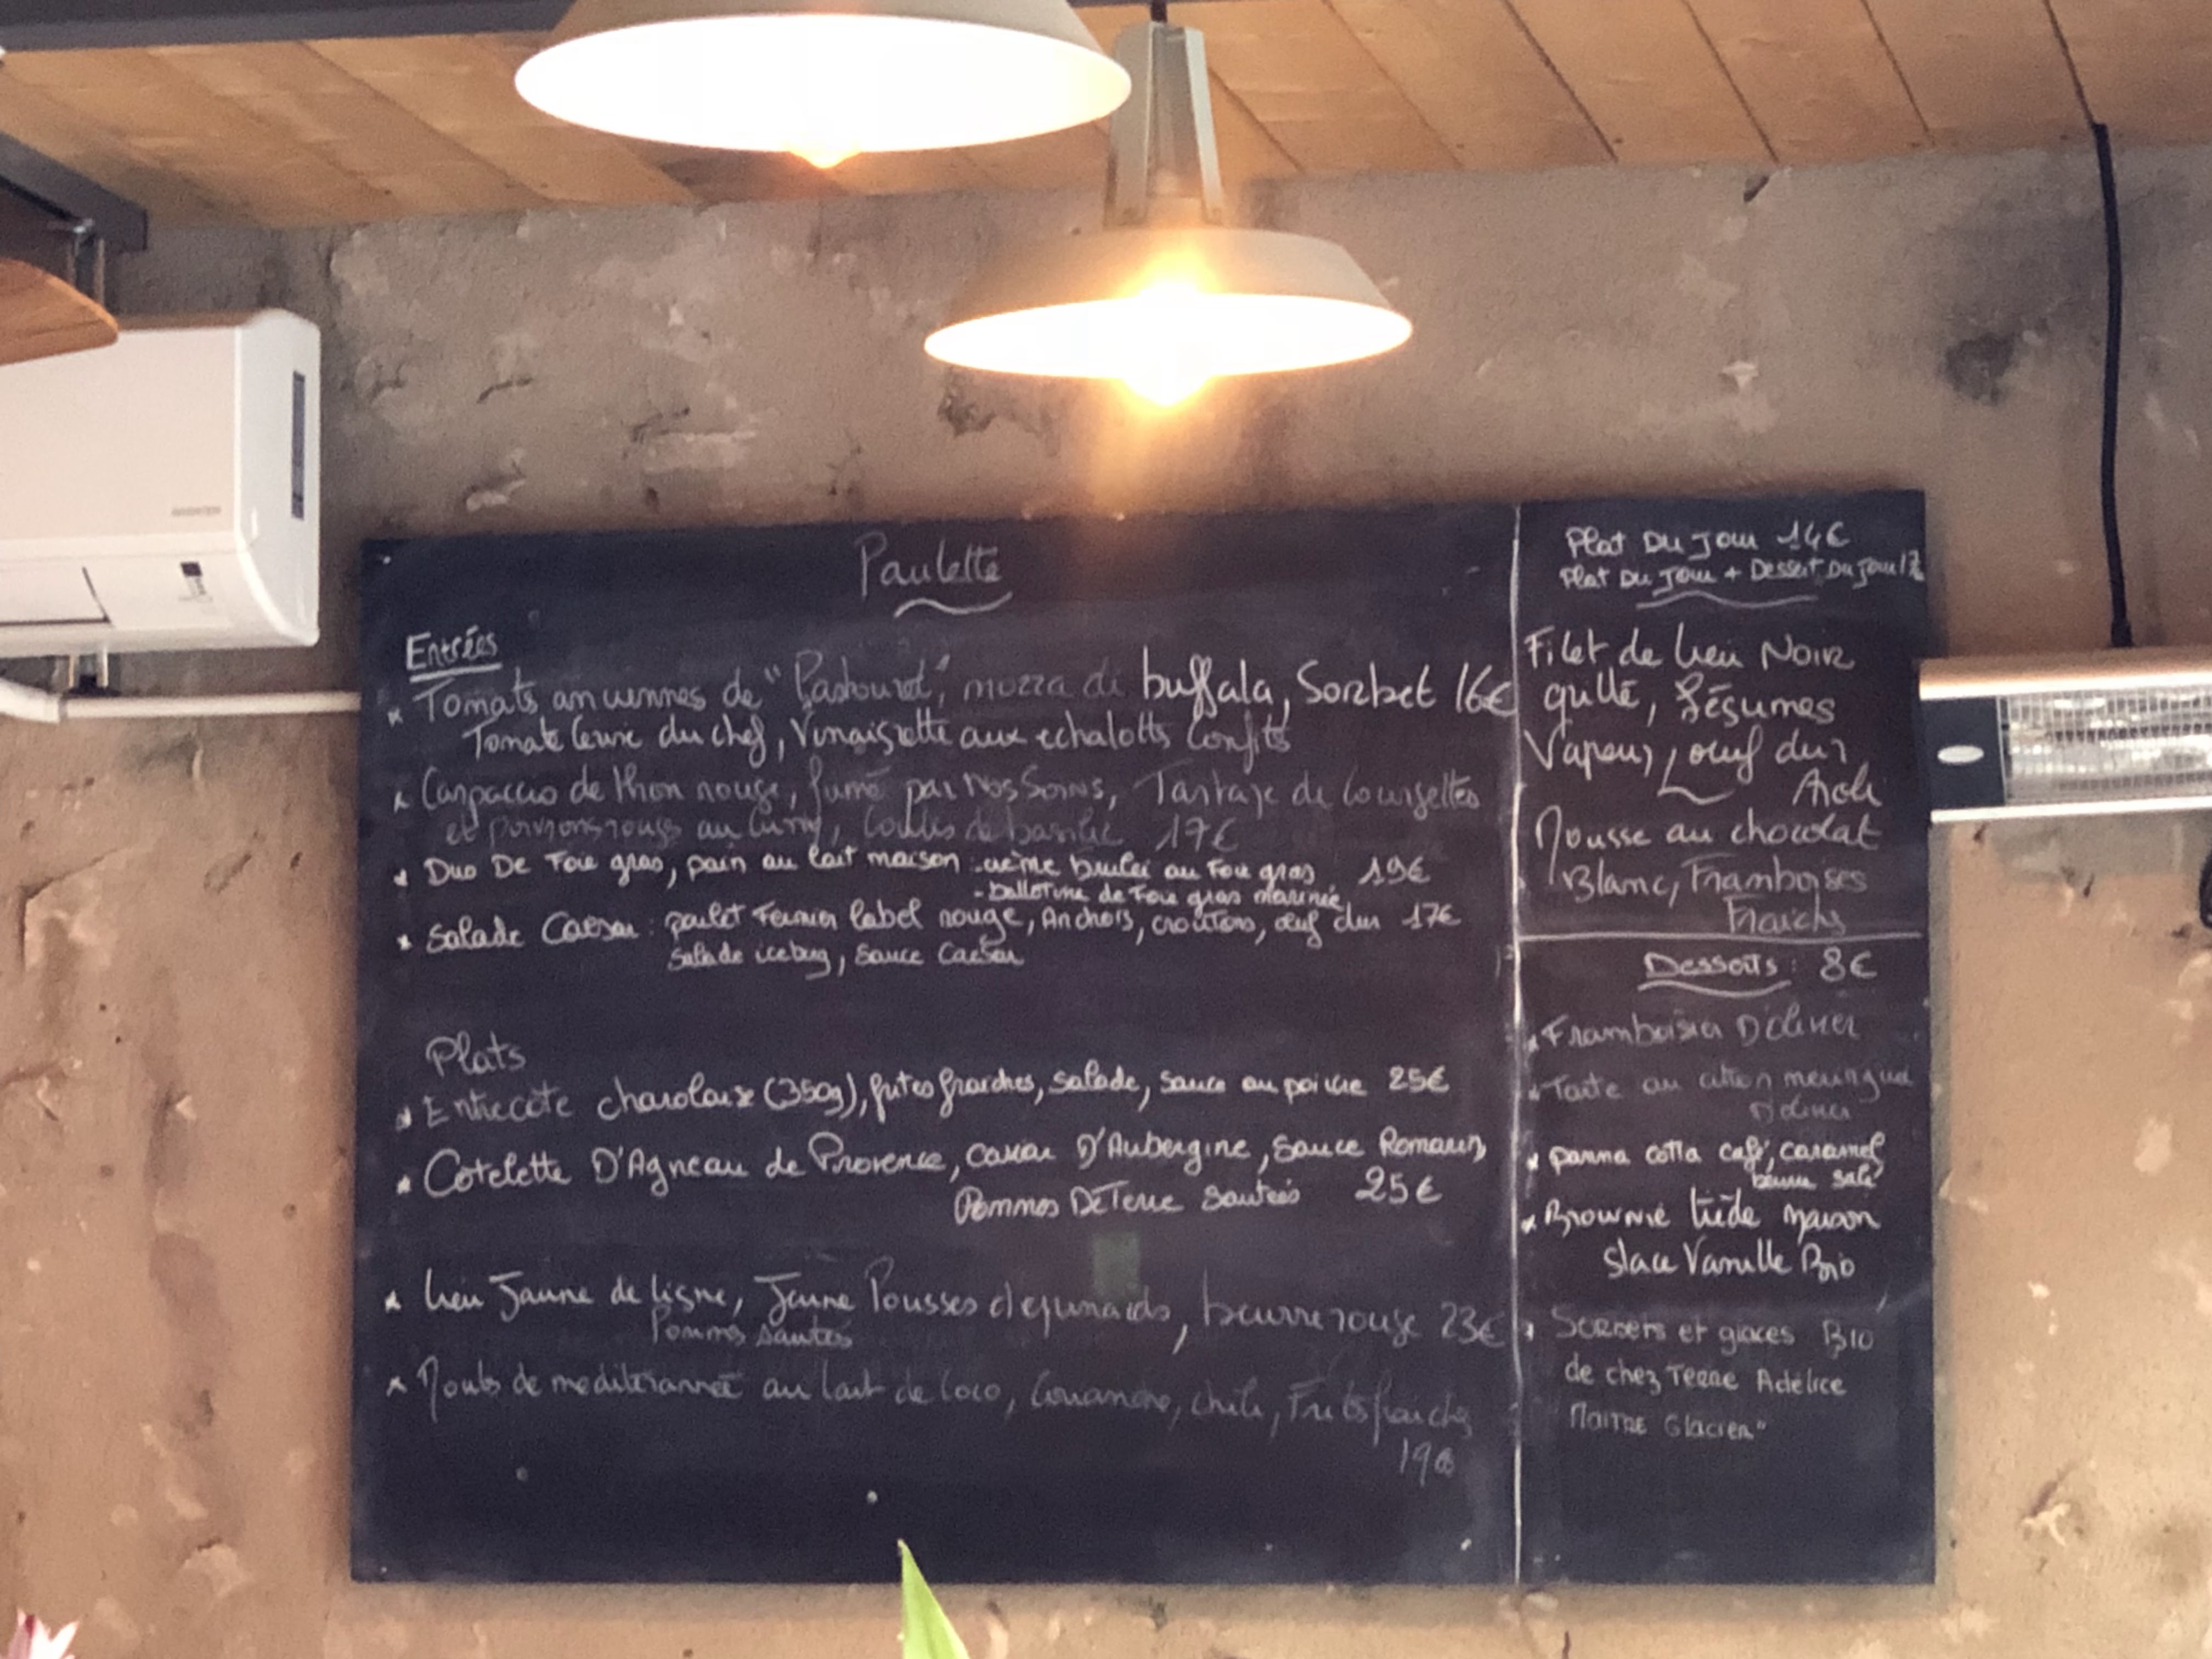 Paulette
Entrées
* Tomates anciennes de "Pastouret", mozza di buffala, Sorbet 16€
Tomate Cerise du chef, Vinaigrette aux echalottes Confits
* Carpaccio de thon rouge, fumé par Nos Soins, Tartare de Courgettes
et poivrons rouges au Curry, Coulis de basilic 17€
* Duo De Foie gras, pain au lait maison : -crème brulée au Foie gras 19€
- ballotine de Foie gras marinée
* Salade Caesar : poulet Fermier label rouge, Anchois, croutons, œuf dur 17€
salade iceberg, sauce Caesar
Plats
* Entrecote charolaise (350g), frites fraiches, salade, sauce au poivre 25€
* Cotelette D'Agneau de Provence, caviar D'Aubergine, Sauce Romarin
Pommes De Terre Sautées 25€
* Lieu Jaune de ligne, Jeune Pousses d'epinards, beurre rouge 23€
Pommes sautés
* Moules de mediterannée au lait de Coco, Coriandre, chili, Frites fraiches
19€
Plat Du Jour 14€
Plat Du Jour + Dessert Du Jour
Filet de Lieu Noir
grillé, Légumes
Vapeur, oeuf dur
Aioli
Mousse au chocolat
Blanc, Framboises
Fraiches
Desserts : 8€
* Framboisier D'oliver
* Tarte au citron meringué
D'oliver
* panna cotta café, caramel
beurre salé
* Brownie tiède Maison
glace Vanille Bio
* Sorbets et glaces Bio
de chez Terre Adélice
"Maitre Glacier"